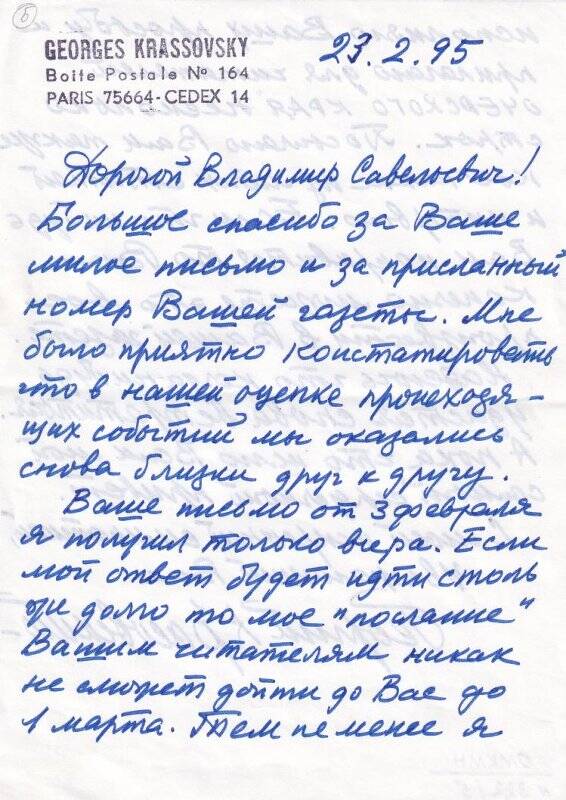 б
GEORGES KRASSOVSKY
Boite Postale N° 164
PARIS 75664-CEDEX 14
23.2.95
Дорогой Владимир Савельевич!
Большое спасибо за Ваше
милое письмо и за присланный
номер Вашей газеты. Мне
было приятно констатировать
что в нашей оценке происходя-
щих событий мы оказались
снова близки друг к другу.
Ваше письмо от 3 февраля
я получил только вчера. Если
мой ответ будет идти столь
же долго то мое "послание"
Вашим читателям никак
не сможет дойти до Вас до
1 марта. Тем не менее я